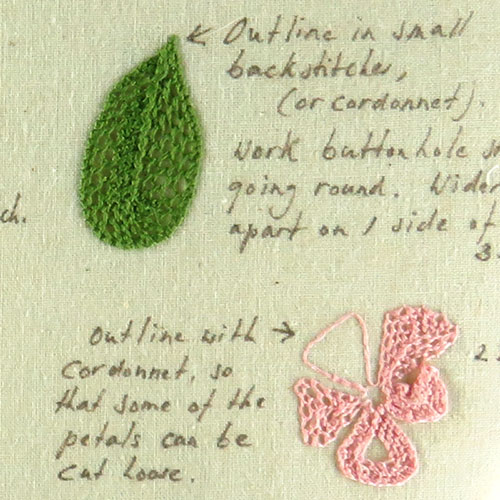 Outline in small
backstitches,
(or cordonnet).
Work buttonhole
going round. Wider
apart on 1 side of
ch.
Outline with
Cordonnet, so
that some of the
petals can be
cut loose.